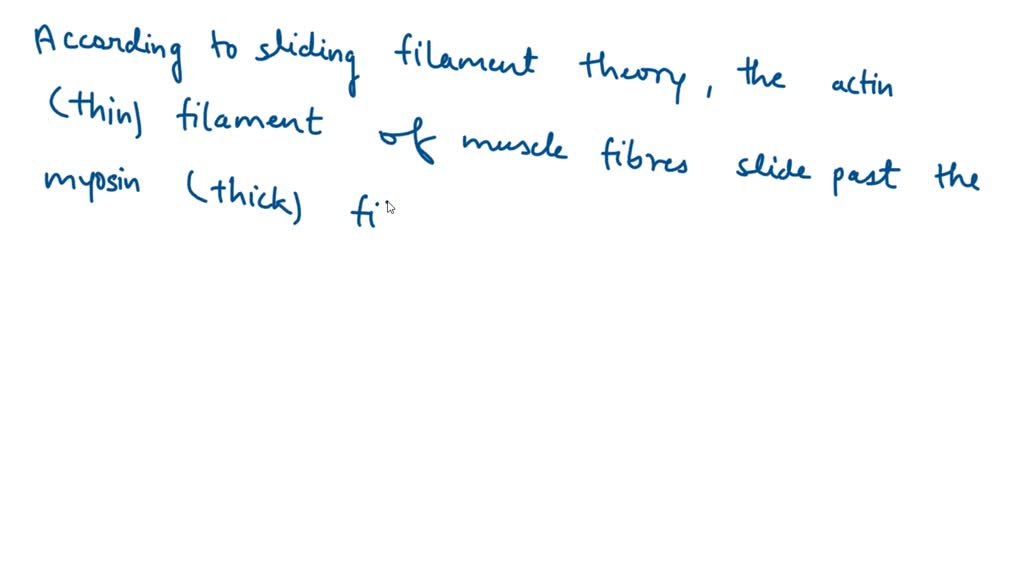 According to sliding filament theory, the actin
(thin) filament of muscle fibres slide past the
myosin (thick) fi